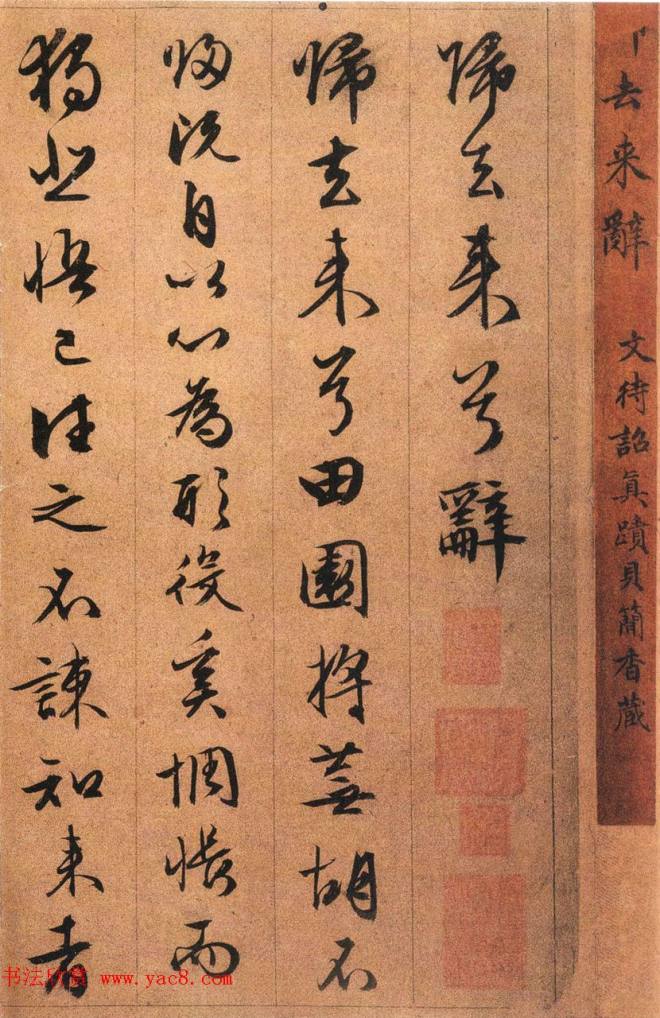 去来辭 文待詔真蹟貝簡香藏
歸去来兮辭
歸去来兮田園将蕪胡不
歸既自以心為形役奚惆悵而
獨悲悟已往之不諫知来者
书法欣赏 www.yac8.com